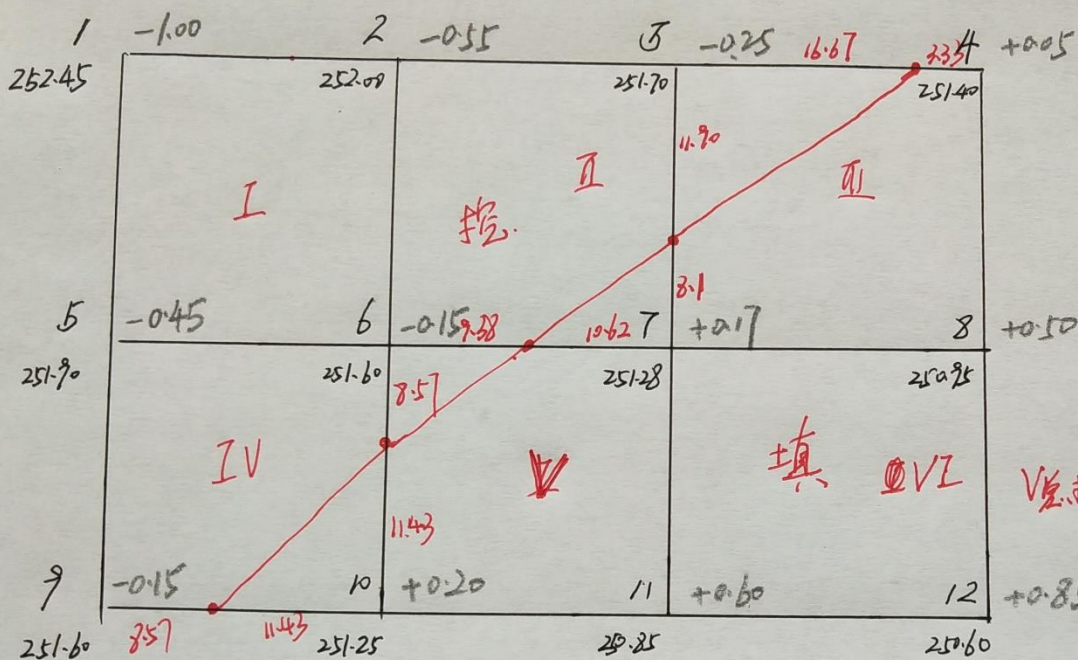 1 -1.00 2 -0.55 3 -0.25 16.67 3.33 4 +0.05
252.45 252.00 251.70 251.40
11.90
I II III
挖.
8.1
5 -0.45 6 -0.15 9.38 10.62 7 +0.17 8 +0.50
251.90 251.60 8.57 251.28 250.95
IV V 填 VI V总
11.43
9 -0.15 10 +0.20 11 +0.60 12
251.60 8.57 11.43 251.25 250.85 250.60